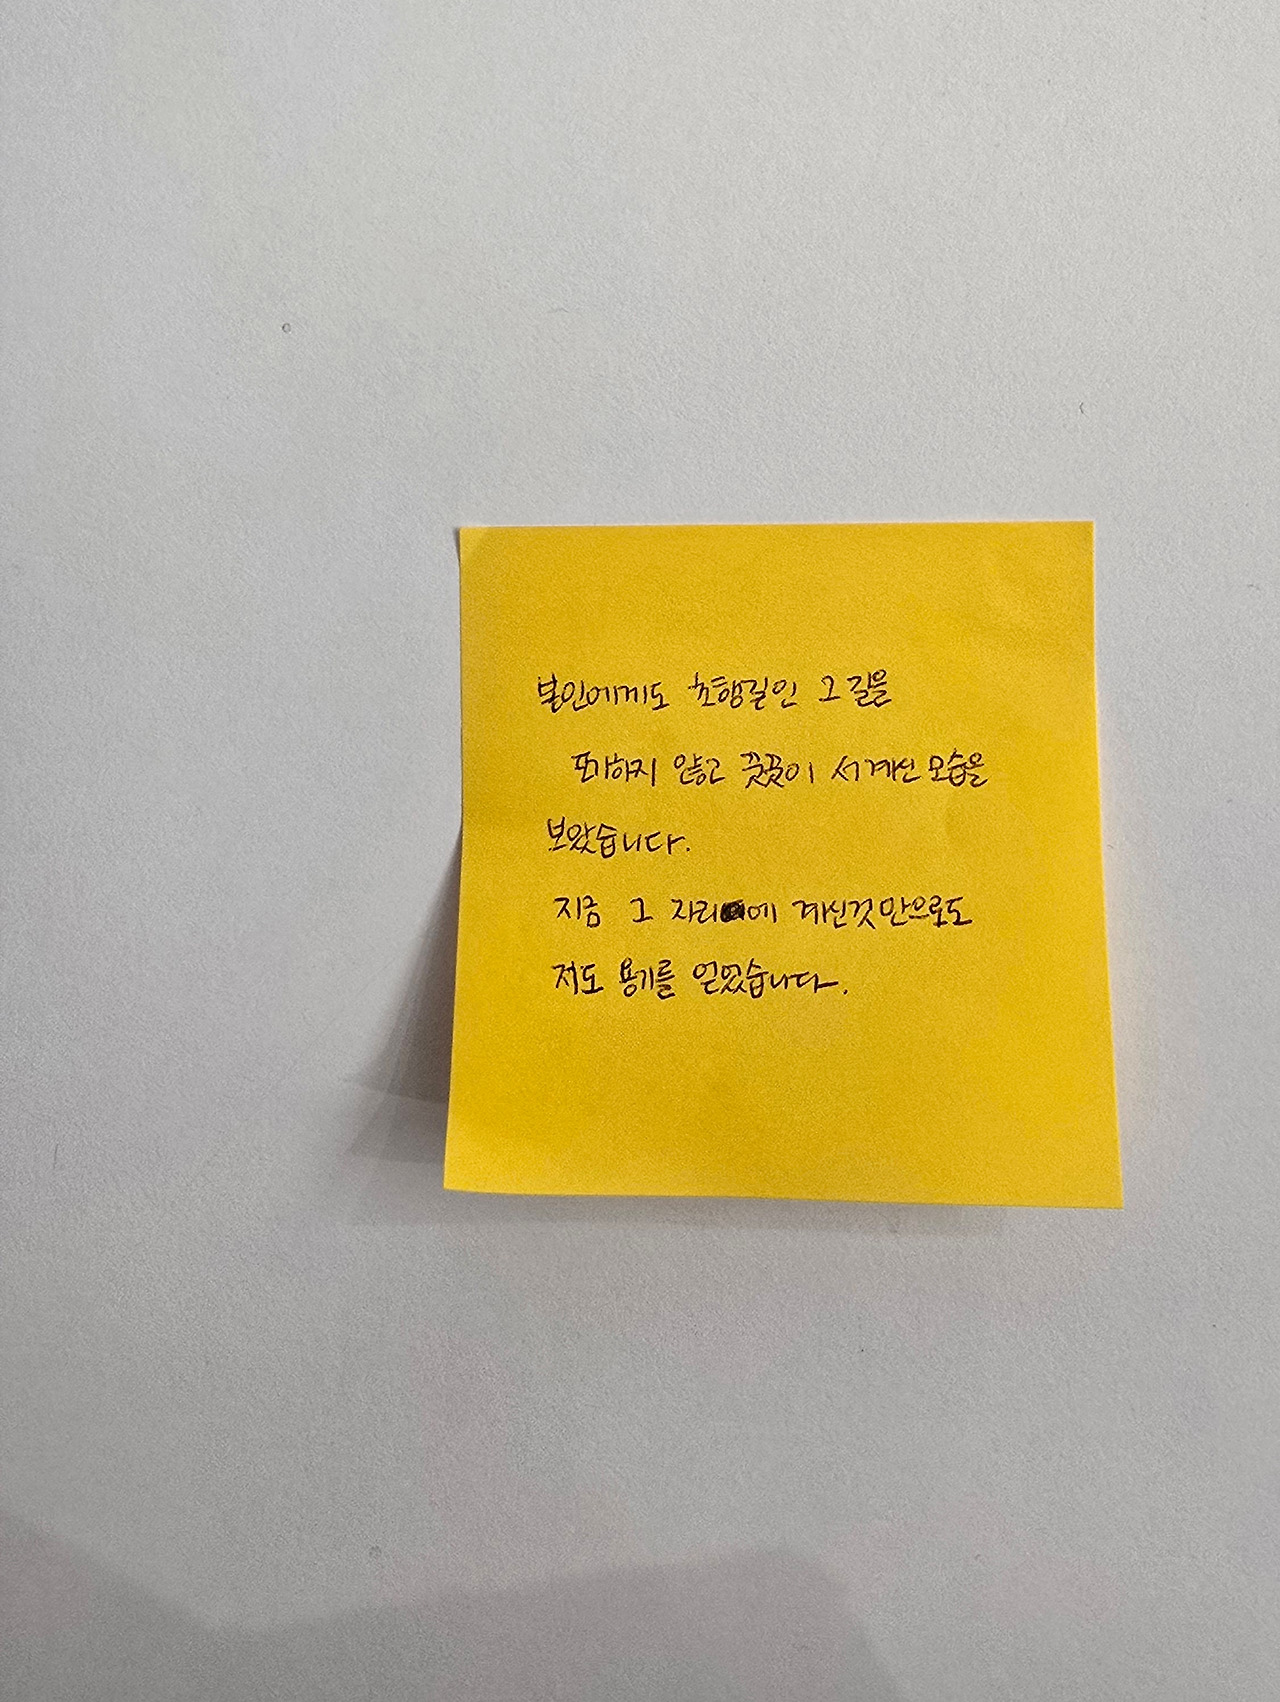 본인에게도 초행길인 그 길을
피하지 않고 꿋꿋이 서계신 모습을
보았습니다.
지금 그 자리에 계신것 만으로도
저도 용기를 얻었습니다.